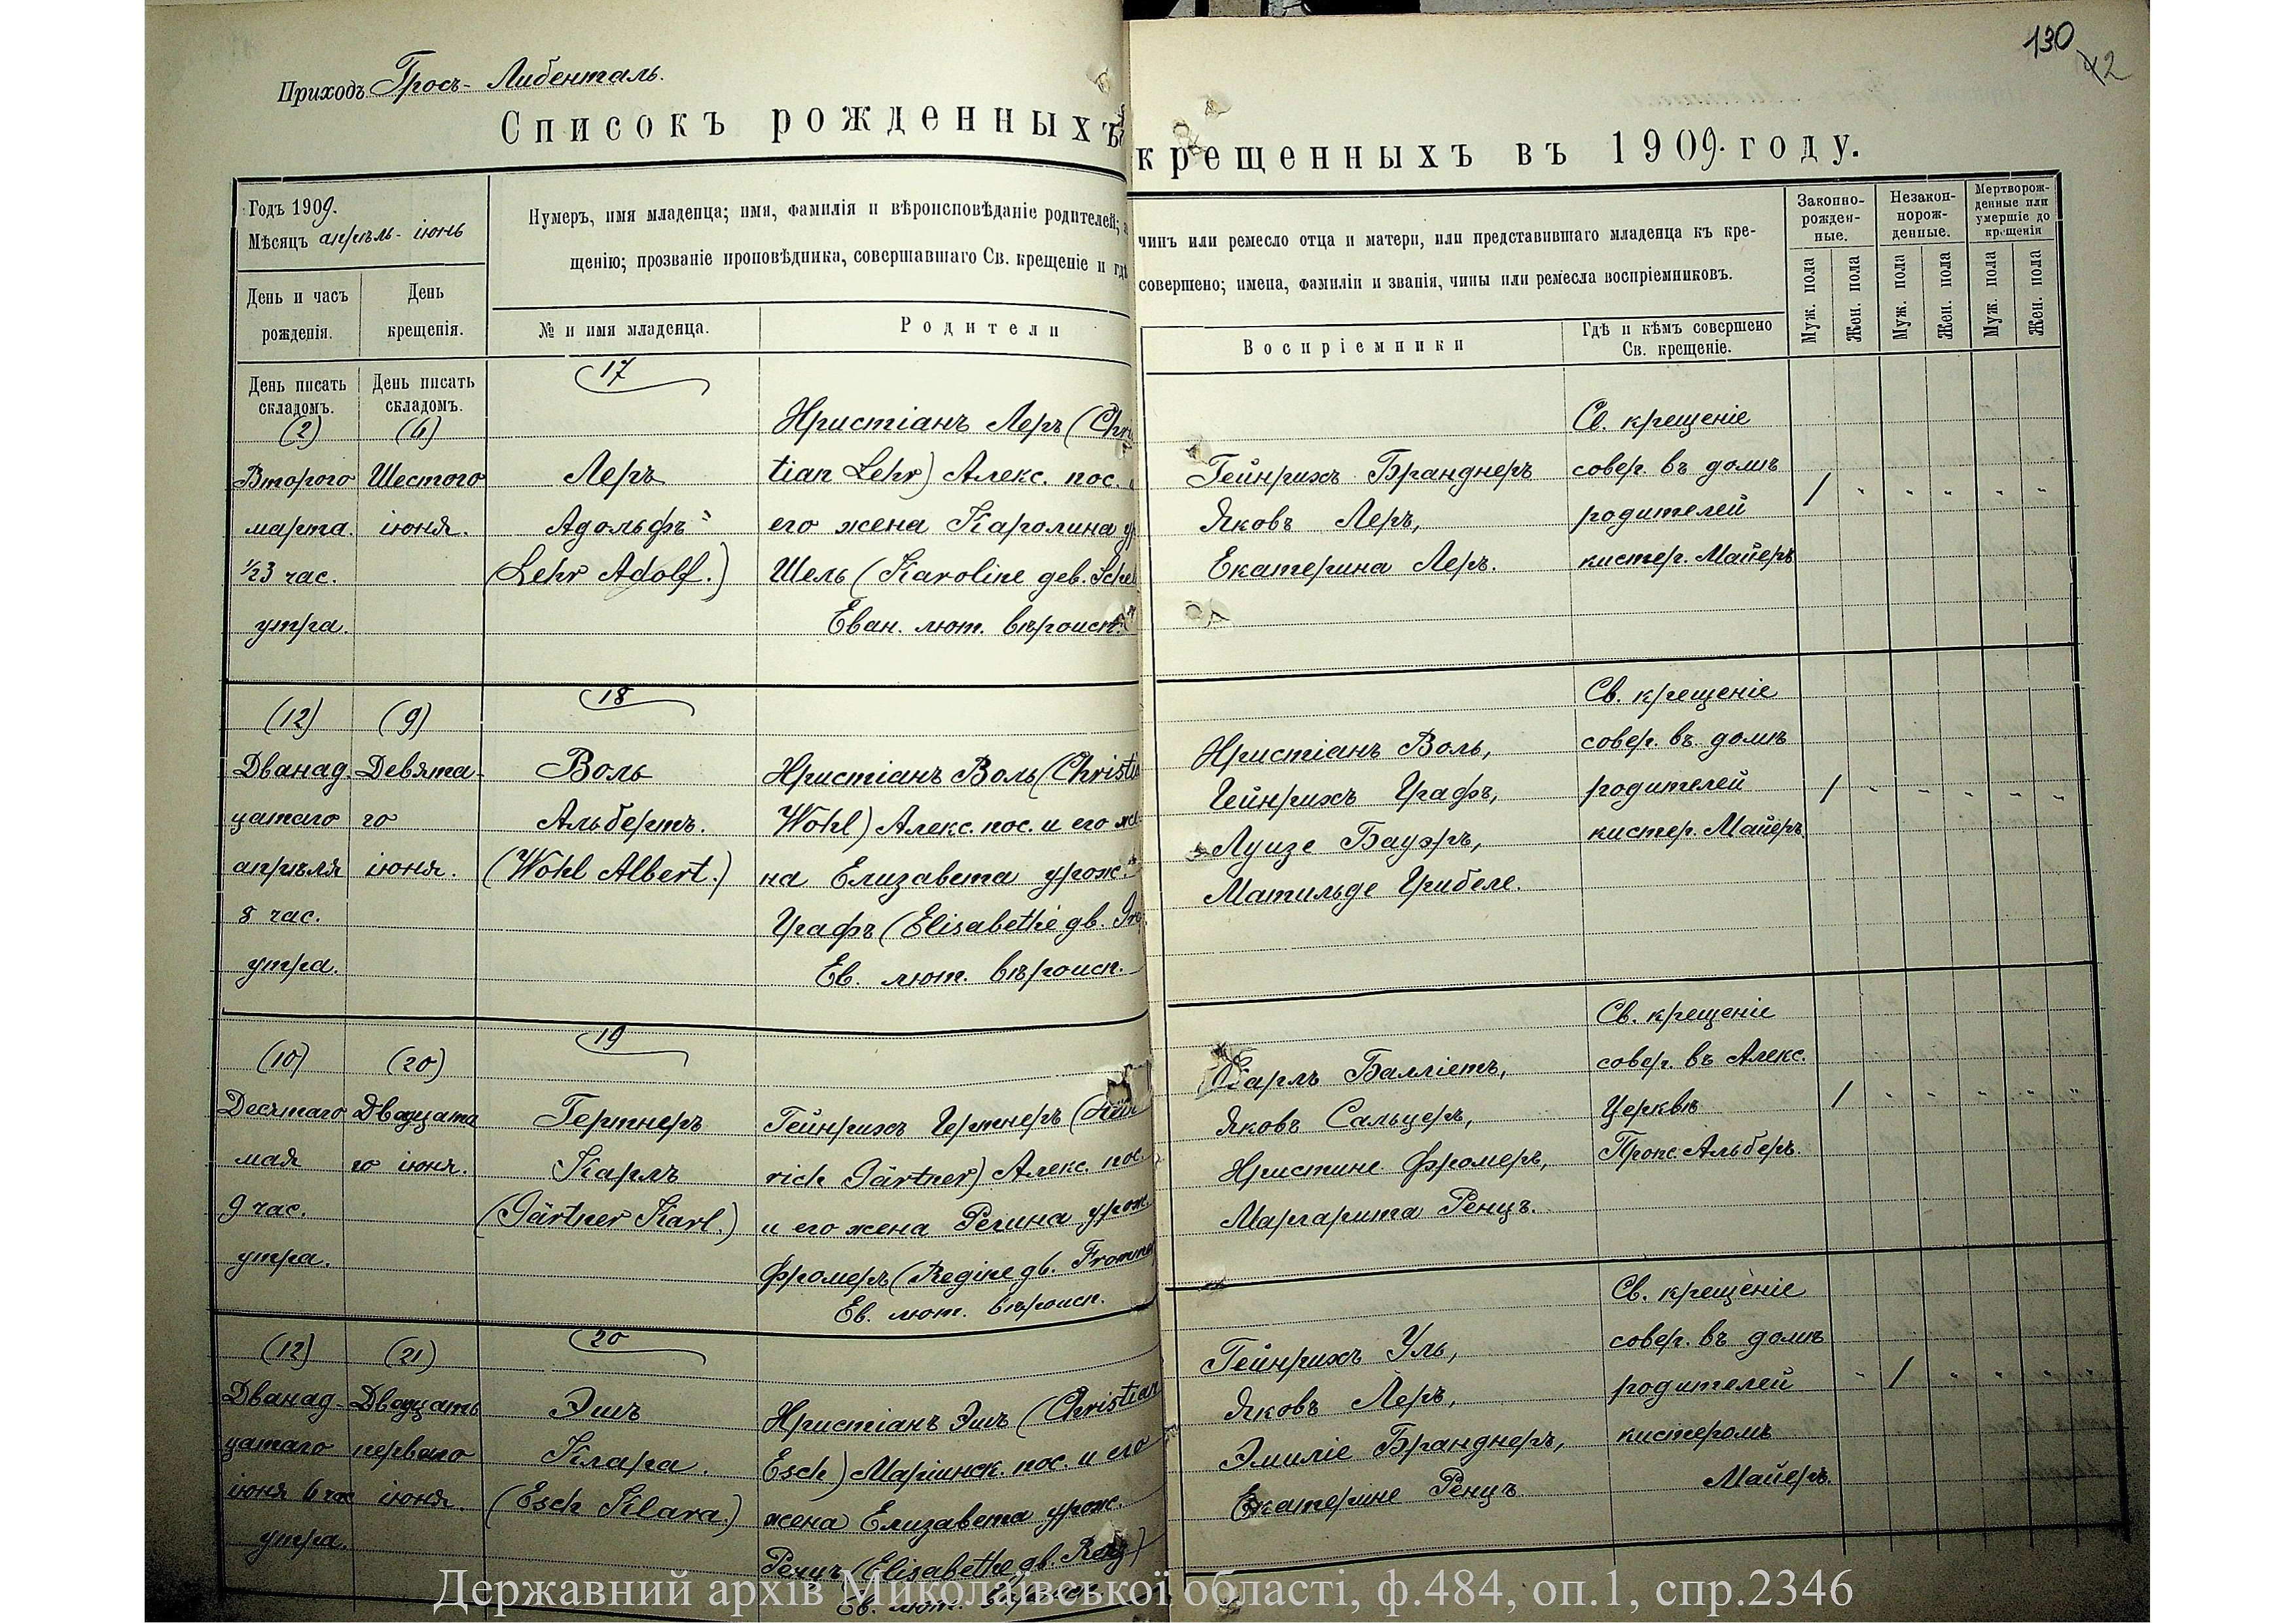 130
42
Приходъ Гросъ-Либенталь.
Списокъ рожденныхъ
крещенныхъ въ 1909. году.
Годъ 1909.
Мѣсяцъ апрѣль-іюнь
День и часъ рожденія.
День крещенія.
Нумеръ, имя младенца; имя, фамилія и вѣроисповѣданіе родителей;
щенію; прозваніе проповѣдника, совершавшаго Св. крещеніе и гдѣ
чинъ или ремесло отца и матери, или представившаго младенца къ кре-
совершено; имена, фамиліи и званія, чины или ремесла воспріемниковъ.
№ и имя младенца.
Родители
Воспріемники
Гдѣ и кѣмъ совершено
Св. крещеніе.
Законно-
рожден-
ные.
Незакон-
норож-
денные.
Мертворож-
денные или
умершіе до
крещенія
Муж. пола
Жен. пола
Муж. пола
Жен. пола
Муж. пола
Жен. пола
День писать
складомъ.
День писать
складомъ.
(2)
Второго
марта.
½3 час.
утра.
(6)
Шестого
іюня.
17
Леръ
Адольфъ
(Lehr Adolf.)
Христіанъ Леръ (Chri
tian Lehr) Алекс. пос.
его жена Каролина ур
Шель (Karoline geb. Schel
Еван. лют. вѣроисп.
Гейнрихъ Бранднеръ
Яковъ Леръ,
Екатерина Леръ.
Св. крещеніе
совер. въ домѣ
родителей
кистер. Майеръ
/ " " " " "
(12)
Двѣнад
цатаго
апрѣля
8 час.
утра.
(9)
Девята-
го
іюня.
18
Воль
Альбертъ.
(Wohl Albert.)
Христіанъ Воль (Christi
Wohl) Алекс. пос. и его же
на Елизавета урож.
Графъ (Elisabethe gb. Gra
Ев. лют. вѣроисп.
Христіанъ Воль,
Гейнрихъ Графъ,
Луизе Бауэръ,
Матильде Грибеле.
Св. крещеніе
совер. въ домѣ
родителей
кистер. Майеръ
/ " " " " "
(10)
Десятаго
мая
9 час.
утра.
(20)
Двадцата
го іюня.
19
Гертнеръ
Карлъ
(Gärtner Karl.)
Гейнрихъ Гертнеръ (Hein
rich Gärtner) Алекс. пос
и его жена Регина урож.
Фромеръ (Regine gb. Frommer
Ев. лют. вѣроисп.
Карлъ Балліетъ,
Яковъ Сальцеръ,
Христине Фромеръ,
Маргарита Ренцъ.
Св. крещеніе
совер. въ Алекс.
Церквѣ
Пропс. Альберъ.
/ " " " " "
(12)
Двѣнад-
цатаго
іюня 6 час
утра.
(21)
Двадцать
перваго
іюня.
20
Эшъ
Клара.
(Esch Klara.)
Христіанъ Эшъ (Christian
Esch) Маріинск. пос. и его
жена Елизавета урож.
Ренцъ (Elisabethe gb. Renz)
Ев. лют. вѣроисп.
Гейнрихъ Уль,
Яковъ Леръ,
Эмиліе Бранднеръ,
Екатерине Ренцъ
Св. крещеніе
совер. въ домѣ
родителей
кистеромъ
Майеръ.
" / " " " "
Державний архів Миколаївської області, ф.484, оп.1, спр.2346